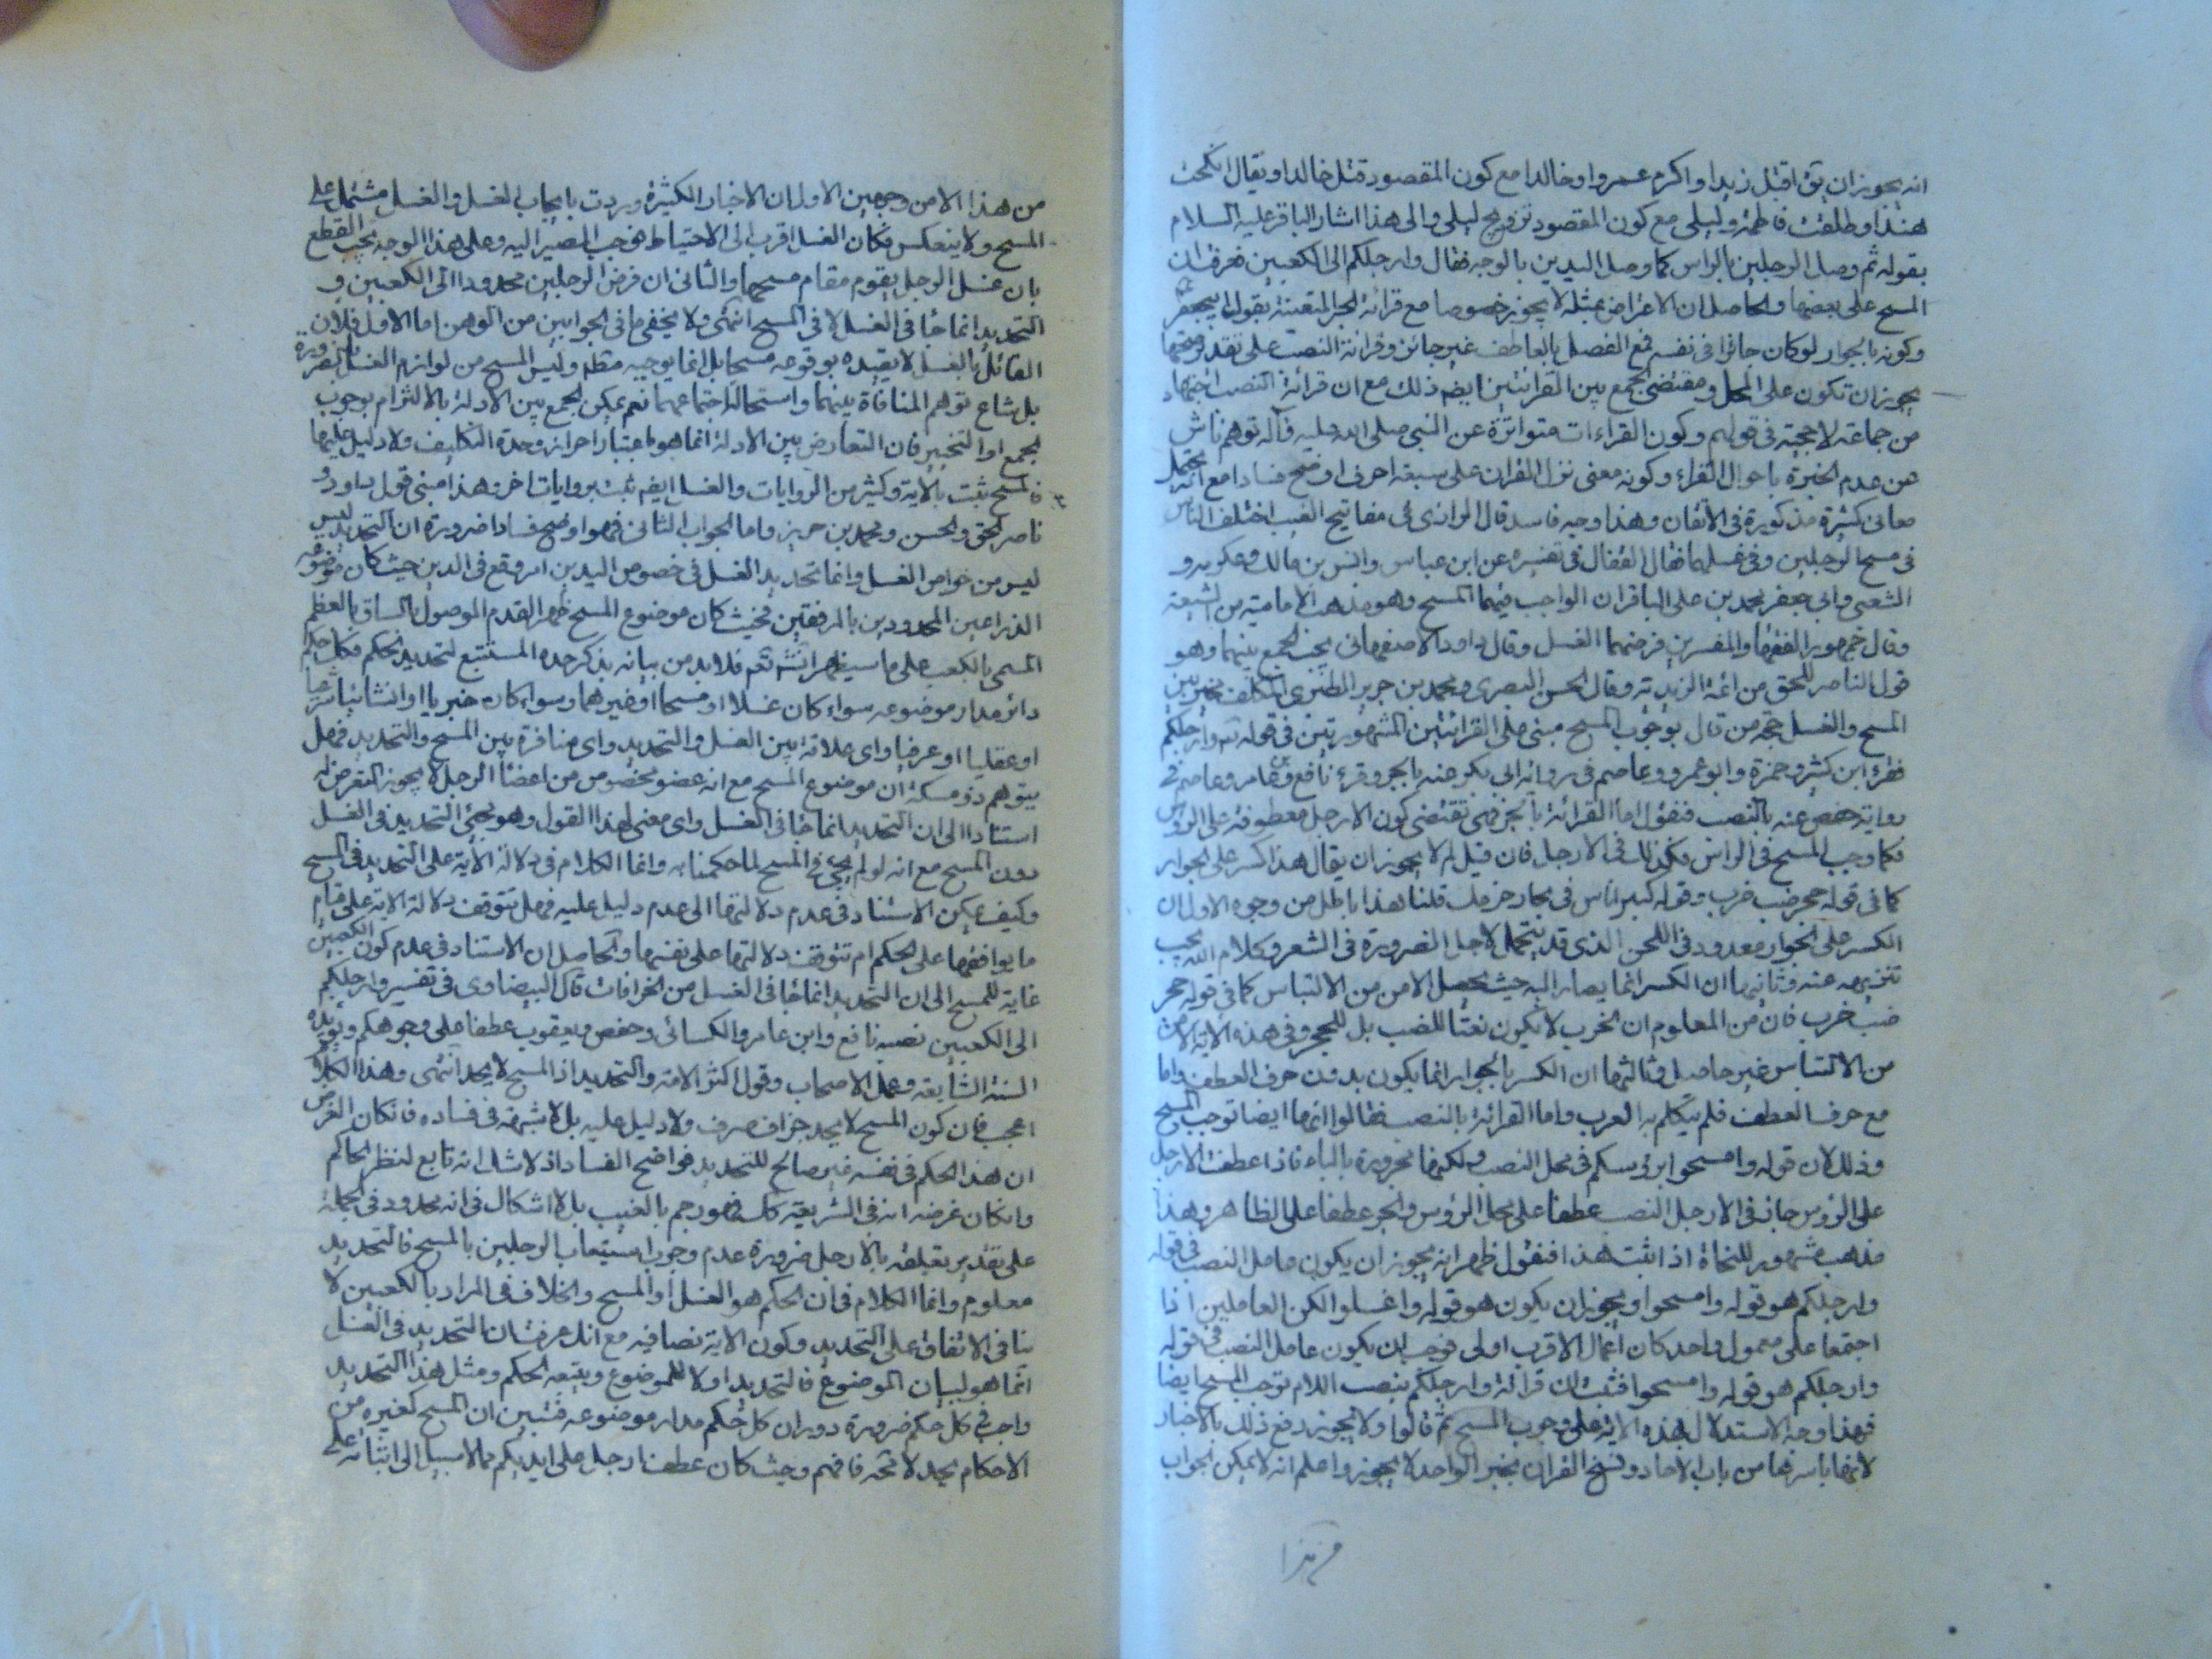 انه يجوز ان يق اقبل زيدا واكرم عمروا وخالدا مع كون المقصود قتل خالدا ويقال انكحت
هندا وطلقت فاطمة وليلى مع كون المقصود تزويج ليلى والى هذا اشار الباقر عليه السلام
بقوله ثم وصل الرجلين بالراس كما وصل اليدين بالوجه فقال وارجلكم الى الكعبين فعرفنا ان
المسح على بعضها والحاصل ان الاعراض بمثله لا يجوز خصوصا مع قرائة الجر المتعينة بقول ابيجعفر
وكونه بالجوار لو كان جائزا في نفسه فمع الفصل بالعاطف غير جائز وقرائة النصب على تقدير صحتها
يجوز ان تكون على المحل ومقتضى الجمع بين القرائتين ايضم ذلك مع ان قرائة النصب اجتهاد
من جماعة لا حجية في قولهم وكون القراءات متواترة عن النبي صلى الله عليه وآله توهم ناش
عن عدم الخبرة باحوال القراء وكونه معنى نزل القران على سبعة احرف اوضح فسادا مع انه يحتمل
معانى كثيرة مذكورة في الاتقان وهذا وجه فاسد قال الرازى في مفاتيح الغيب اختلف الناس
في مسح الرجلين وفي غسلهما فقال القفال في تفسيره عن ابن عباس وانس بن مالك وعكرمه و
الشعبى وابي جعفر محمد بن على الباقر ان الواجب فيهما المسح وهو مذهب الامامية من الشيعة
وقال جمهور الفقهاء والمفسرين فرضهما الغسل وقال داود الاصفهانى يجب الجمع بينهما وهو
قول الناصر للحق من ائمة الزيدية وقال الحسن البصرى ومحمد بن جرير الطبرى المكلف مخير بين
المسح والغسل حجة من قال بوجوب المسح مبنى على القرائتين المشهورتين في قوله تع وارجلكم
فقرء ابن كثير وحمزة وابو عمرو وعاصم في رواية ابي بكر عنه بالجر وقرء نافع وابن عامر وعاصم في
رواية حفص عنه بالنصب فنقول اما القرائة بالجر فهى تقتضى كون الارجل معطوفة على الرؤس
فكما وجب المسح في الراس فكذلك في الارجل فان قيل لم لا يجوز ان يقال هذا كسر على الجوار
كما في قوله جحر ضب خرب وقوله كبير اناس في بجاد مزمل قلنا هذا باطل من وجوه الاول ان
الكسر على الجوار معدود في اللحن الذى قد يتحمل لاجل الضرورة في الشعر وكلام الله يجب
تنزيهه عنه وثانيها ان الكسر انما يصار اليه حيث يحصل الامن من الالتباس كما في قوله جحر
ضب خرب فان من المعلوم ان الخرب لا يكون نعتا للضب بل للجحر وفي هذه الاية الامن
من الالتباس غير حاصل وثالثها ان الكسر بالجوار انما يكون بدون حرف العطف واما
مع حرف العطف فلم يتكلم به العرب واما القرائة بالنصب فقالوا انها ايضا توجب المسح
وذلك لان قوله وامسحوا برؤسكم في محل النصب ولكنها مجرورة بالباء فاذا عطفت الارجل
على الرؤس جاز في الارجل النصب عطفا على محل الرؤس والجر عطفا على الظاهر وهذا
مذهب مشهور للنحاة اذا ثبت هذا فنقول ظهر انه يجوز ان يكون عامل النصب في قوله
وارجلكم هو قوله وامسحوا ويجوز ان يكون هو قوله واغسلوا لكن العاملين اذا
اجتمعا على معمول واحد كان اعمال الاقرب اولى فوجب ان يكون عامل النصب في قوله
وارجلكم هو قوله وامسحوا فثبت ان قرائة وارجلكم بنصب اللام توجب المسح ايضا
فهذا وجه الاستدلال بهذه الاية على وجوب المسح ثم قالوا ولا يجوز دفع ذلك بالاخبار
لانها باسرها من باب الاحاد ونسخ القران بخبر الواحد لا يجوز واعلم انه لا يمكن الجواب
من هذا
من هذا الا من وجهين الاول ان الاخبار الكثيرة وردت بايجاب الغسل والغسل مشتمل على
المسح ولا ينعكس فكان الغسل اقرب الى الاحتياط فوجب المصير اليه وعلى هذا الوجه يجب القطع
بان غسل الرجل يقوم مقام مسحها والثانى ان فرض الرجلين محدود الى الكعبين و
التحديد انما جاء في الغسل لا في المسح انتهى ولا يخفى ما في الجوابين من الوهن اما الاول فلان
القائل بالغسل لا يقيده بوقوعه مسحا بل انما يوجبه مطلقا وليس المسح من لوازم الغسل بالضرورة
بل شاع توهم المنافاة بينهما واستحالة اجتماعهما نعم يمكن الجمع بين الادلة بالالتزام بوجوب
الجمع او التخيير فان التعارض بين الادلة انما هو باعتبار احراز وحدة التكليف ولا دليل عليها
فالمسح ثبت بالاية وكثير من الروايات والغسل ايضم ثبت بروايات اخر وهذا مبنى قول داود و
ناصر الحق والحسن ومحمد بن جرير واما الجواب الثانى فهو اوضح فسادا ضرورة ان التحديد ليس
ليس من خواص الغسل وانما تحديد الغسل في خصوص اليدين امر وقع في الدين حيث كان موضوعه
الذراعين المحدودين بالمرفقين فحيث كان موضوع المسح ظهر القدم الموصول بالساق بالعظم
المسمى بالكعب على ما سيظهر انشاء الله تعم فلا بد من بيانه بذكر حده المستتبع لتحديد الحكم فكل حكم
دائر مدار موضوعه سواء كان غسلا او مسحا او غيرهما وسواء كان خبريا او انشائيا شرعيا
او عقليا او عرفيا واى علاقة بين الغسل والتحديد واى منافرة بين المسح والتحديد فهل
يتوهم ذو مسكة ان موضوع المسح مع انه عضو مخصوص من اعضاء الرجل لا يجوز التعرض له
استنادا الى ان التحديد انما جاء في الغسل واى معنى لهذا القول وهو مجئ التحديد في الغسل
دون المسح مع انه لو لم يجئ في المسح لما حكمنا به وانما الكلام في دلالة الاية على التحديد في المسح
وكيف يمكن الاستناد في عدم دلالتها الى عدم دليل عليه فهل تتوقف دلالة الاية على قيام
ما يوافقها على الحكم ام تتوقف دلالتها على نفسها والحاصل ان الاستناد في عدم كون الكعبين
غاية للمسح الى ان التحديد انما جاء في الغسل من الخرافات قال البيضاوى في تفسير وارجلكم
الى الكعبين نصبه نافع وابن عامر والكسائى وحفص ويعقوب عطفا على وجوهكم ويؤيده
السنة الشايعة وعمل الاصحاب وقول اكثر الائمة والتحديد اذ المسح لا يحد انتهى وهذا الكلام
اعجب فان كون المسح لا يحد جزاف صرف ولا دليل عليه بل لا شبهة في فساده فان كان الغرض
ان هذا الحكم في نفسه غير صالح للتحديد فواضح الفساد اذ لا شك انه تابع لنظر الحاكم
وان كان غرضه انه في الشريعة كك فهو رجم بالغيب بل لا اشكال في انه محدود في الجملة
على تقدير تعلقه بالارجل ضرورة عدم وجوب استيعاب الرجلين بالمسح فالتحديد
معلوم وانما الكلام في ان الحكم هو الغسل او المسح والخلاف في المراد بالكعبين لا
ينافى الاتفاق على التحديد وكون الاية نصا فيه مع انك عرفت ان التحديد في الغسل
انما هو لبيان الموضوع فالتحديد اولا للموضوع ويتبعه الحكم ومثل هذا التحديد
واجب في كل حكم ضرورة دوران كل حكم مدار موضوعه فتبين ان المسح كغيره من
الاحكام يحد لا محة فافهم وحيث كان عطف ارجل على ايديكم مما لا سبيل الى اثباته على